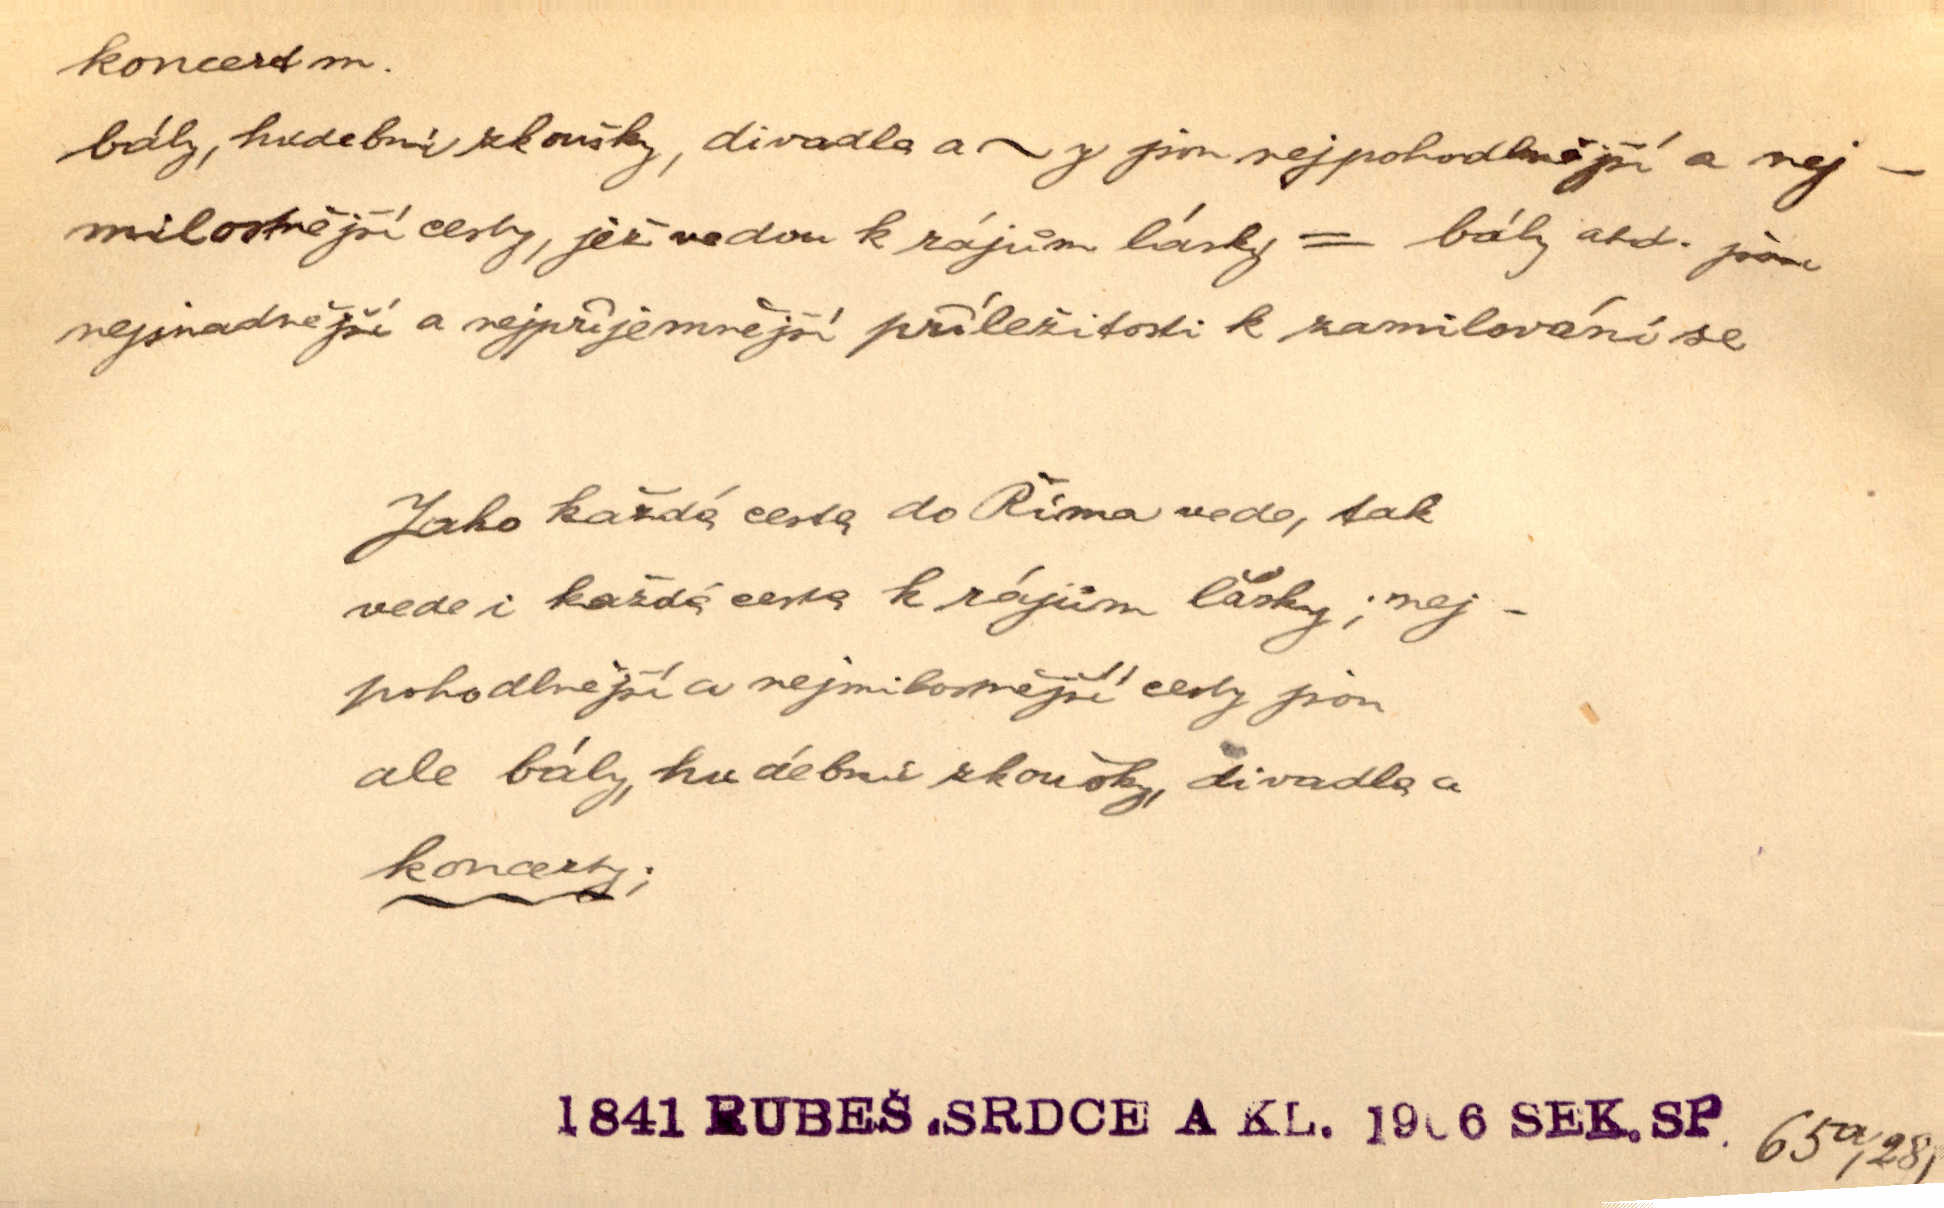 koncert m.
bály, hudební zkoušky, divadla a ~ y jsou nejpohodlnější a nej-
milostnější cesty, jež vedou k rájům lásky = bály atd. jsou
nejsnadnější a nejpříjemnější příležitosti k zamilování se
Jako každá cesta do Říma vede, tak
vede i každá cesta k rájům lásky; nej-
pohodlnější a nejmilostnější cesty jsou
ale bály, hudební zkoušky, divadla a
koncerty;
1841 RUBEŠ.SRDCE A KL. 1906 SEK. SP. 65a,28,